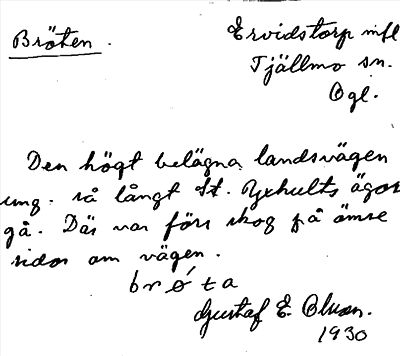 Bröten.
Ervidstorp mfl
Tjällmo sn.
Ögl.
Den högt belägna landsvägen
ung. så långt St. Yxhults ägor
gå. Där var förr skog på ömse
sidor om vägen.
brøta
Gustaf E. Olson.
1930